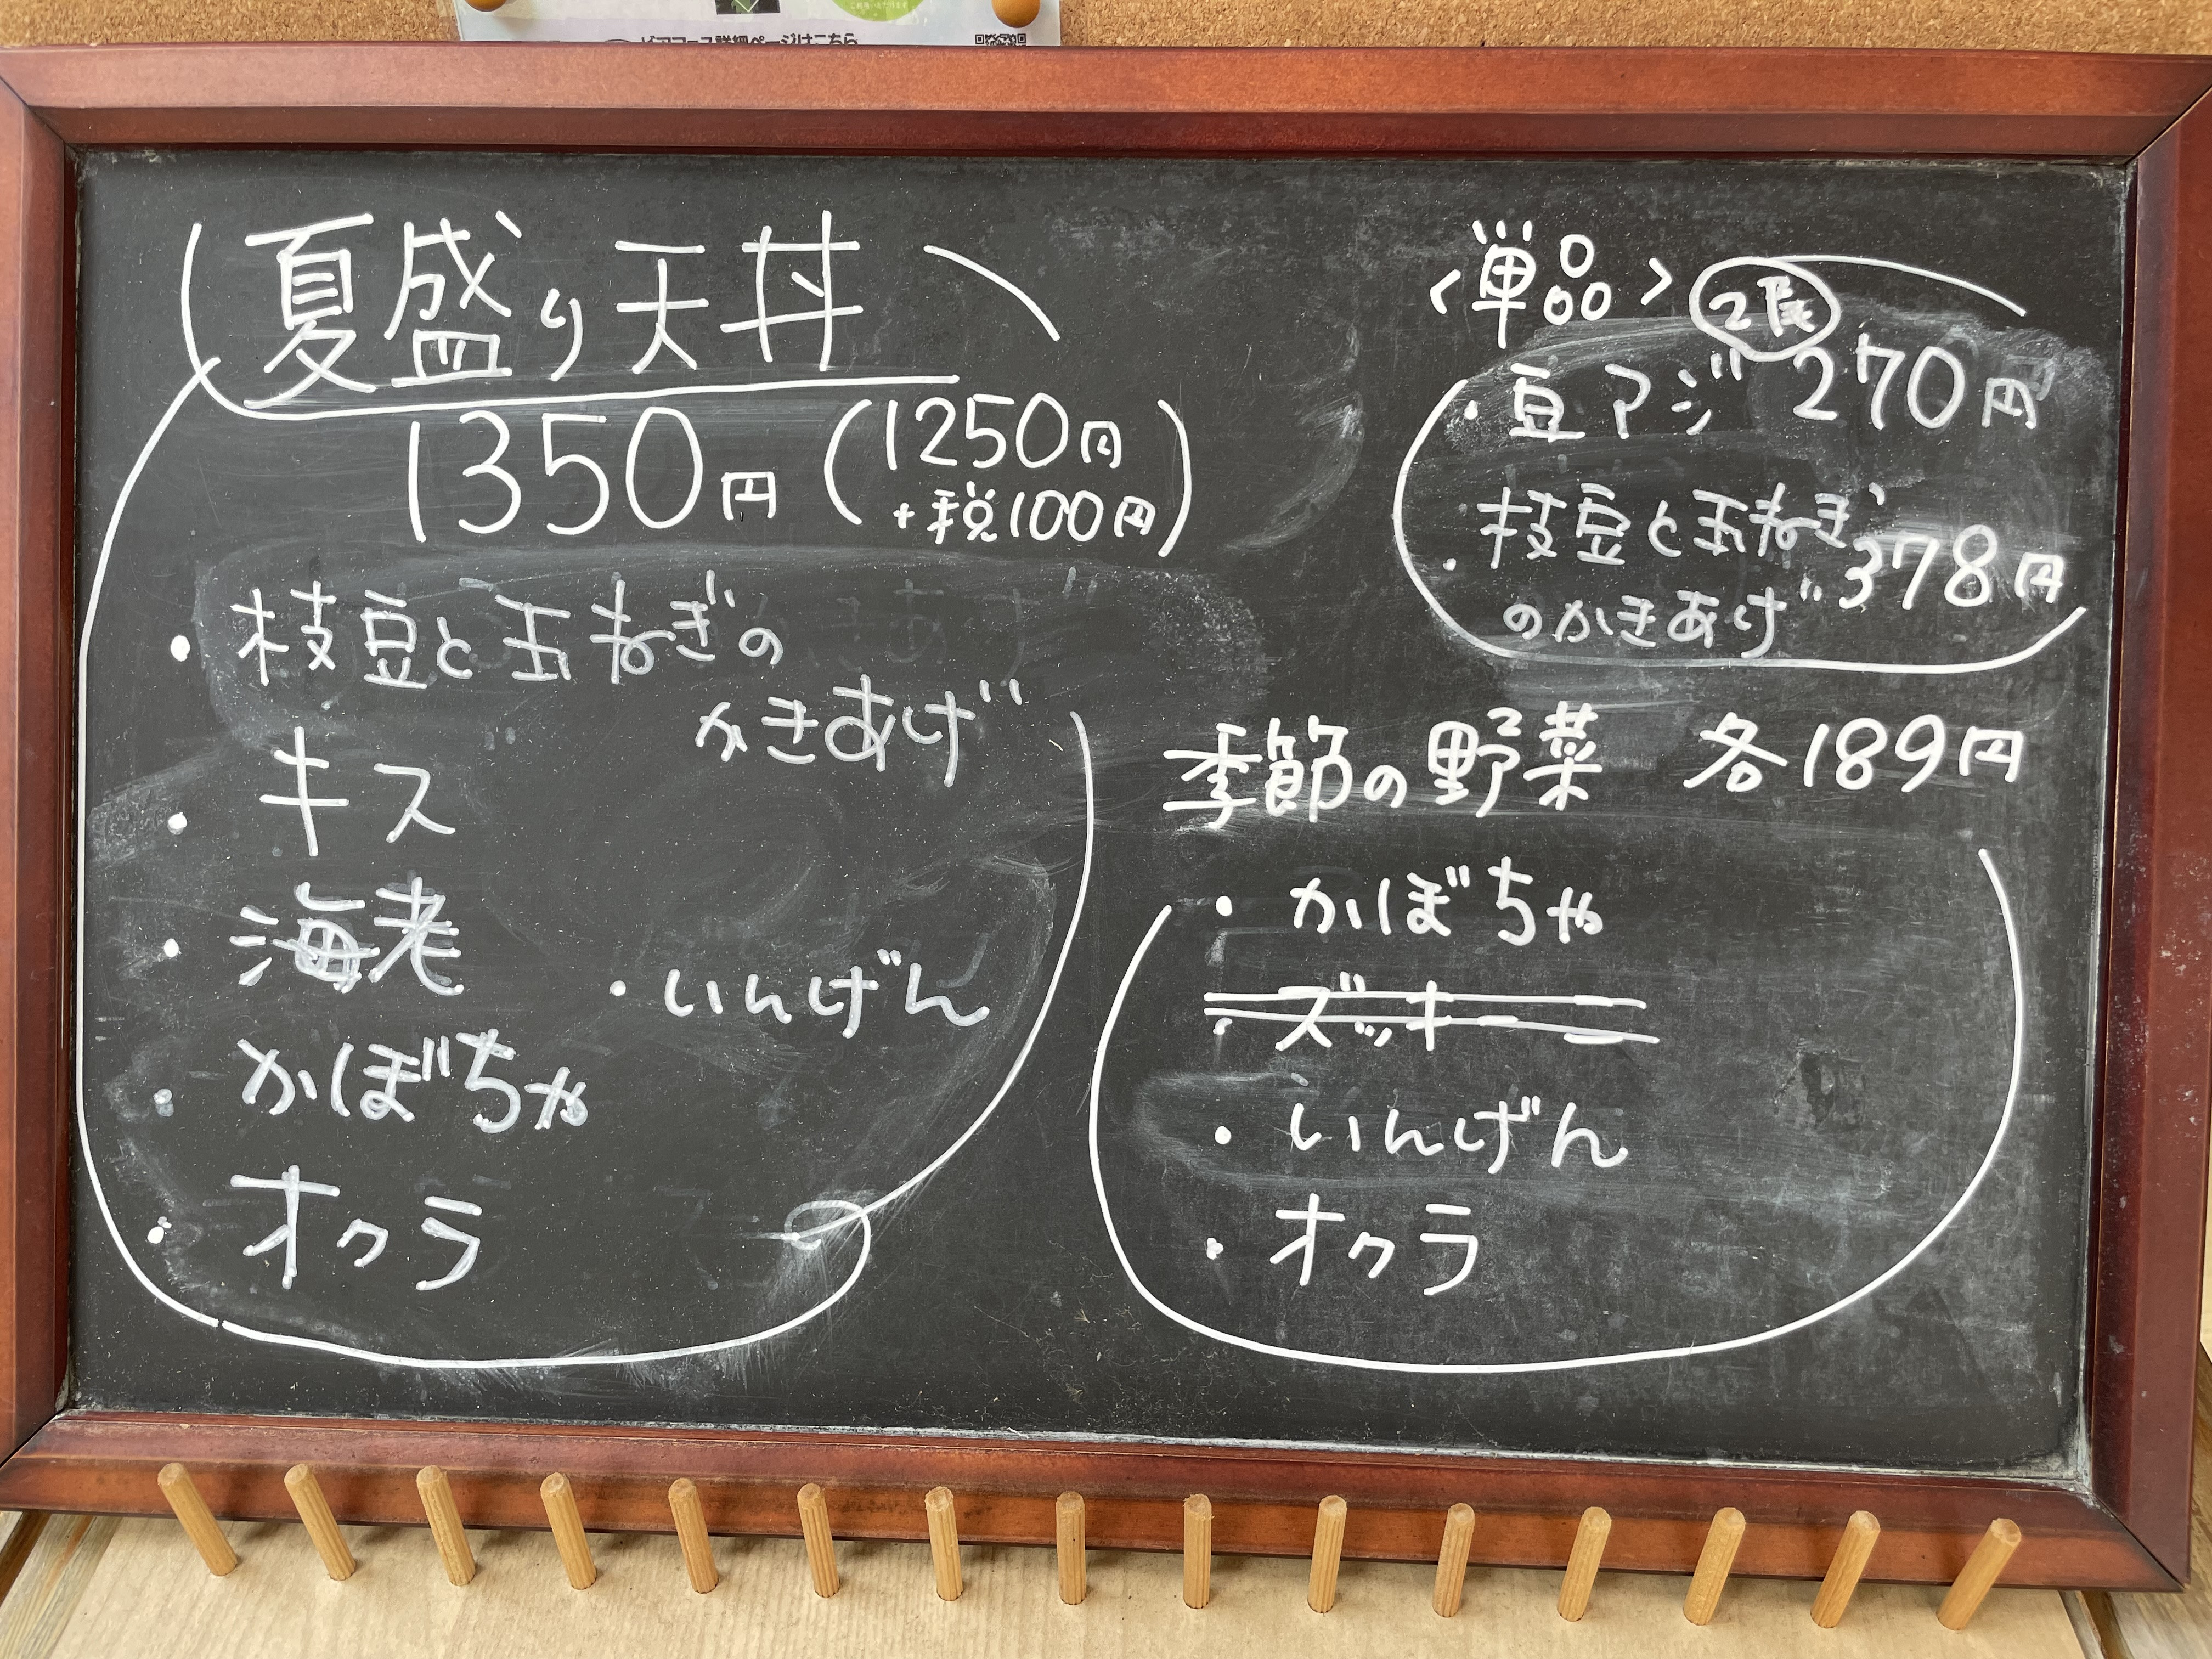 ビアコース詳細ページはこちら
夏盛り天丼
1350円(1250円
+税100円)
・枝豆と玉ねぎの
かきあげ
・キス
・海老
・いんげん
・かぼちゃ
・オクラ
<単品>
2尾
・豆アジ 270円
・枝豆と玉ねぎ
のかきあげ 378円
季節の野菜 各189円
・かぼちゃ
・ズッキ
・いんげん
・オクラ